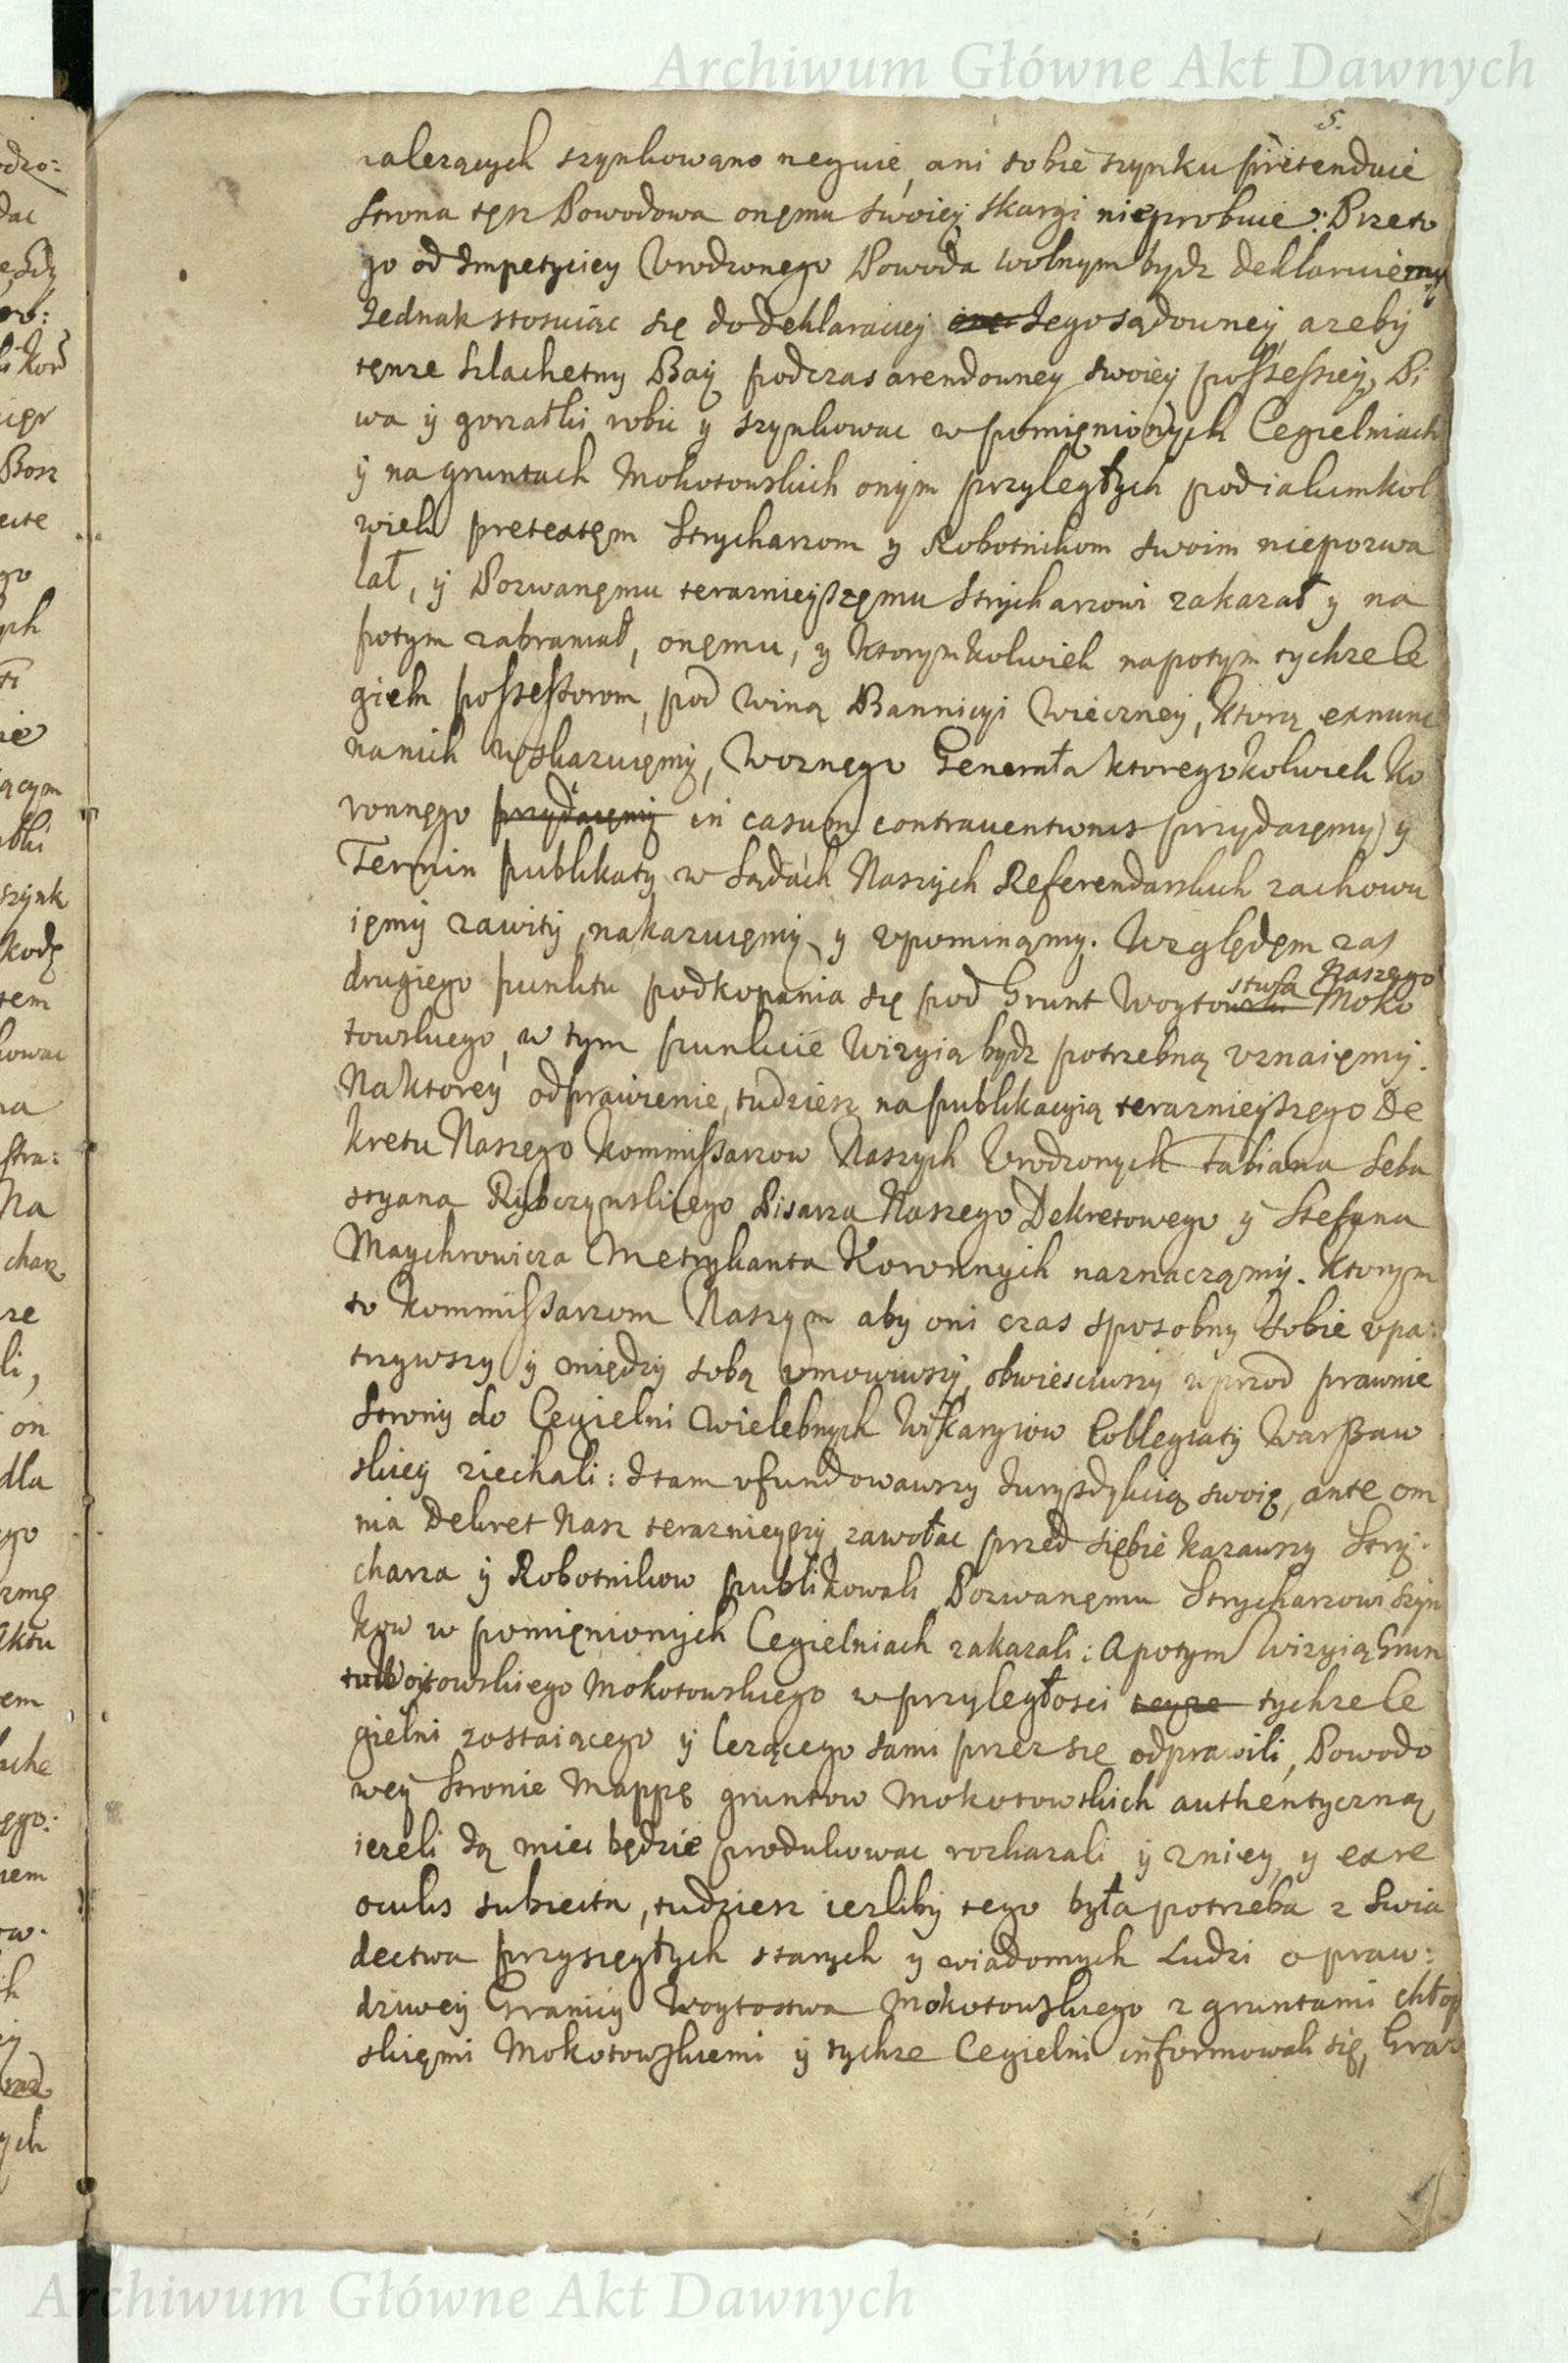 Archiwum Główne Akt Dawnych
5.
należących szynkowano neguie, ani sobie szynku prætenduie
Strona tęsz Powodowa onęmu swoiey skargi nieprobuie: Przeto
go od Impetyciey Vrodzonego Powoda wolnym bydz deklaruiemy
Jednak stosuiąc się do deklaracyey Jego sądowney, azeby
tęnze Szlachetny Bay podczas arendowney swoiey possessiey, Pi
wa y gorzałki robic y szynkowac w pomięnionych Cegielniach
y na gruntach Mokotowskich onym przyległych pod iakimkol
wiek pretextęm Strycharzom y Robotnikom swoim niepozwa
lał, y Pozwanęmu teraznieyszęmu Strycharzowi zakazał y na
potym zabraniał, onęmu, y ktorymkolwiek napotym tychze Ce
gieln possessorom, pod winą Bannicyi wieczney, ktorą exnunc
na nich wskazuięmy, Woznęgo Generała ktoregokolwiek Ko
ronnęgo przydaięmy in casum contrauentionis przydaięmy, y
Termin publikaty w Sądach Naszych Referendarskich zachowu
ięmy zawity, nakazuięmy y vpominamy. Względęm zas
drugiego punktu podkopania się pod Grunt Woytowstwa Naszego Moko
towskiego, w tym punkcie Wizyią bydz potrzebną vznaięmy.
Na ktorey odprawienie, tudziesz na publikacyią terazniejszego De
kretu Naszego Kommissarzow Naszych Vrodzonych Fabiana Seba
styana Rybczynskiego Pisarza Naszego Dekretowego y Stefana
Maychrowicza Metrykanta Koronnych naznaczamy. Ktorym
to Kommissarzom Naszym aby oni czas sposobny sobie vpa:
trzywszy y między sobą vmowiwszy, obwiesciwszy wprzod prawnie
Strony do Cegielni Wielebnych Wikaryiow Collegiaty Warszaw
skiey ziechali: I tam vfundowawszy Jurysdykcią swoię, ante om
nia Dekret Nasz terazniejszy zawołac przed siębie kazawszy Stry:
charza y Robotnikow publikowali Pozwanęmu Strycharzowi szyn
kow w pomięnionych Cegielniach zakazali: A potym Wizyią Grun
tu Woitowskiego Mokotowskiego w przyległosci teyze tychze Ce
gielni zostaiącego y lezącego sami przez się odprawili, Powodo
wey Stronie Mappę gruntow Mokotowskich authentyczną
iezeli ią miec będzie produkowac rozkazali y zniey, y exre
oculis subiecta, tudziesz iezliby tego była potrzeba z Swia
dectwa przysięgłych starych y wiadomych Ludzi o praw:
dziwey Granicy Woytostwa Mokotowskiego z gruntami chłop
skięmi Mokotowskiemi y tychze Cegielni informowali się, Gra
Archiwum Główne Akt Dawnych